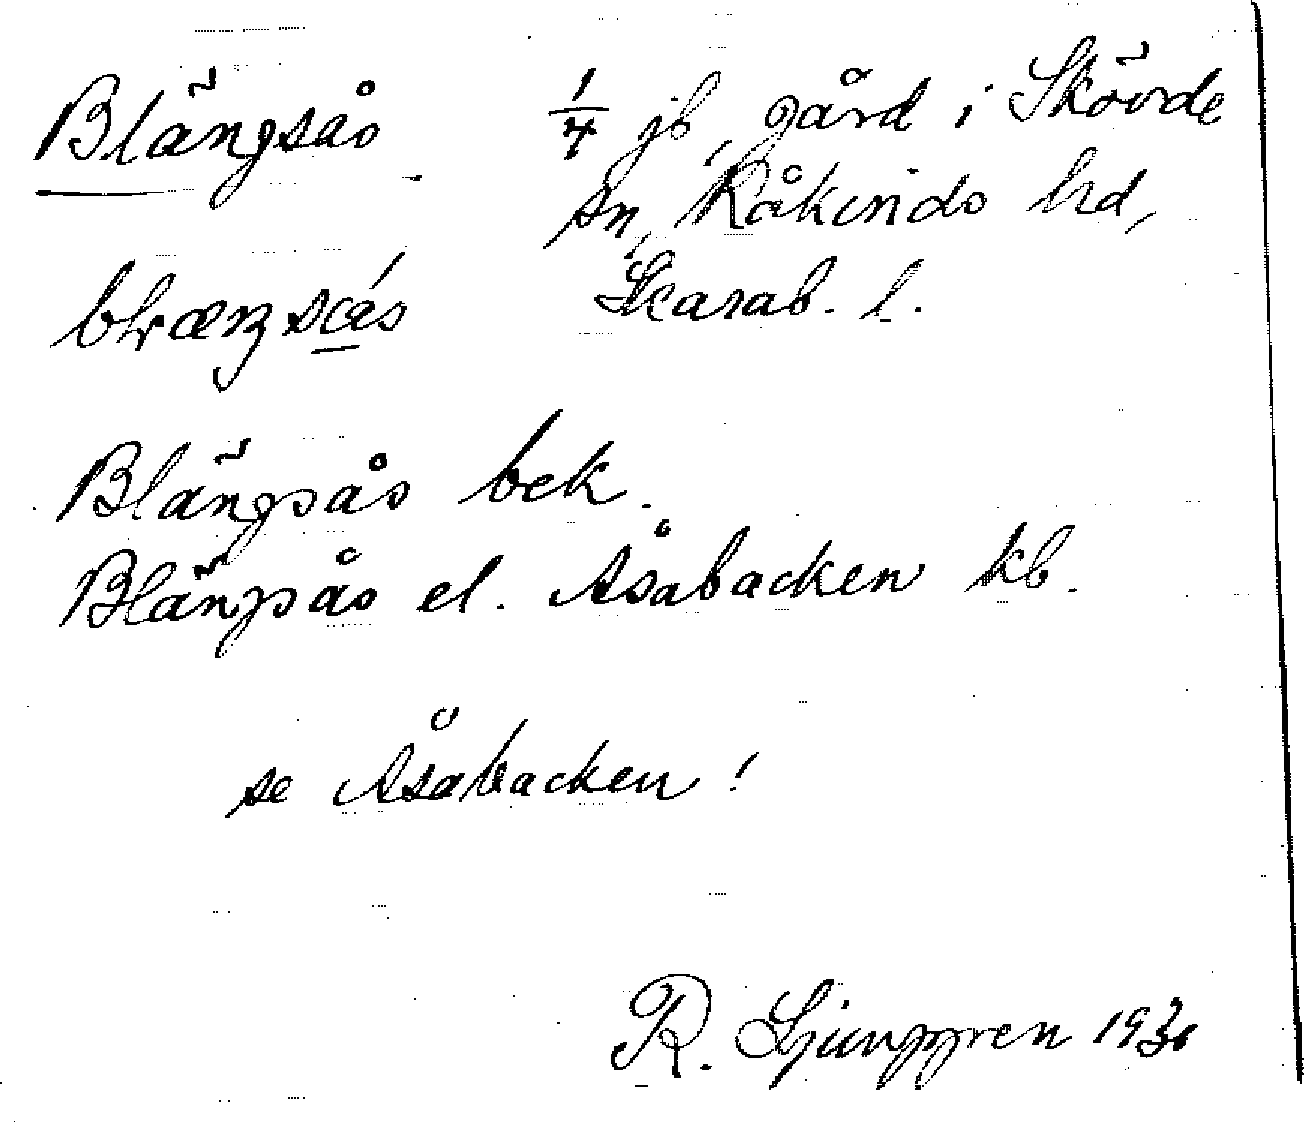 Blängsås 1/4 jb, gård i Skövde
sn, Kåkinds hd,
Skarab. l.
Blängsås bek.
Blängsås el. Åsabacken kb.
se Åsabacken!
R. Ljunggren 1930